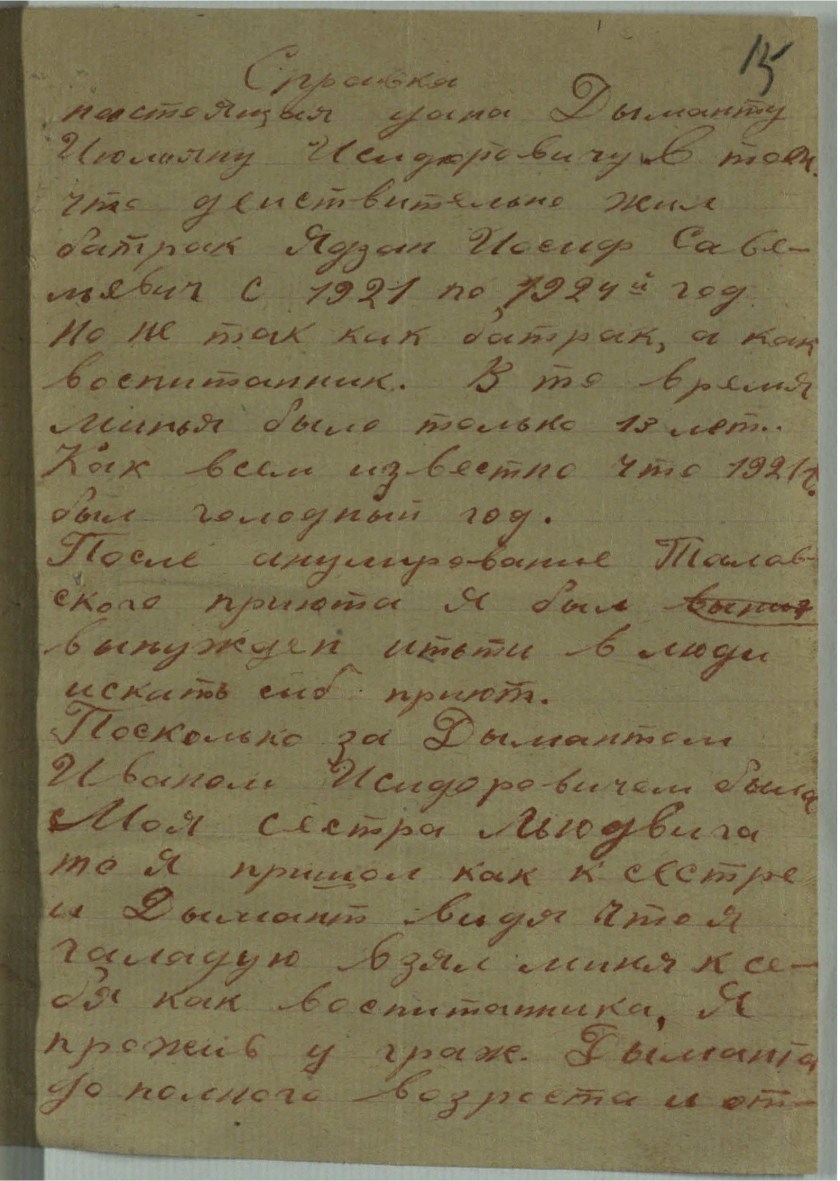 15
Справка
настоящая дана Дыманту
Июльяну Исидоровичу в том.
что деиствительно жил
батрак Ядзан Иосиф Саве-
льевич с 1921 по 1924й год
но не так как батрак, а как
воспитанник. В то время
минья было только 13 лет.
Как всем известно что 1921г.
был голодный год.
После анулирование Талов-
ского приюта я был
вынужден итьти в люди
искать сиб приют.
Посколько за Дымантом
Иваном Исидоровичем была
Моя сестра Льюдвига
то я пришол как к сестре
и Дымант видя что я
галадую взял миня к се-
бя как воспитанника, Я
прожив у граж. Дыманта
до полного возроста и от-